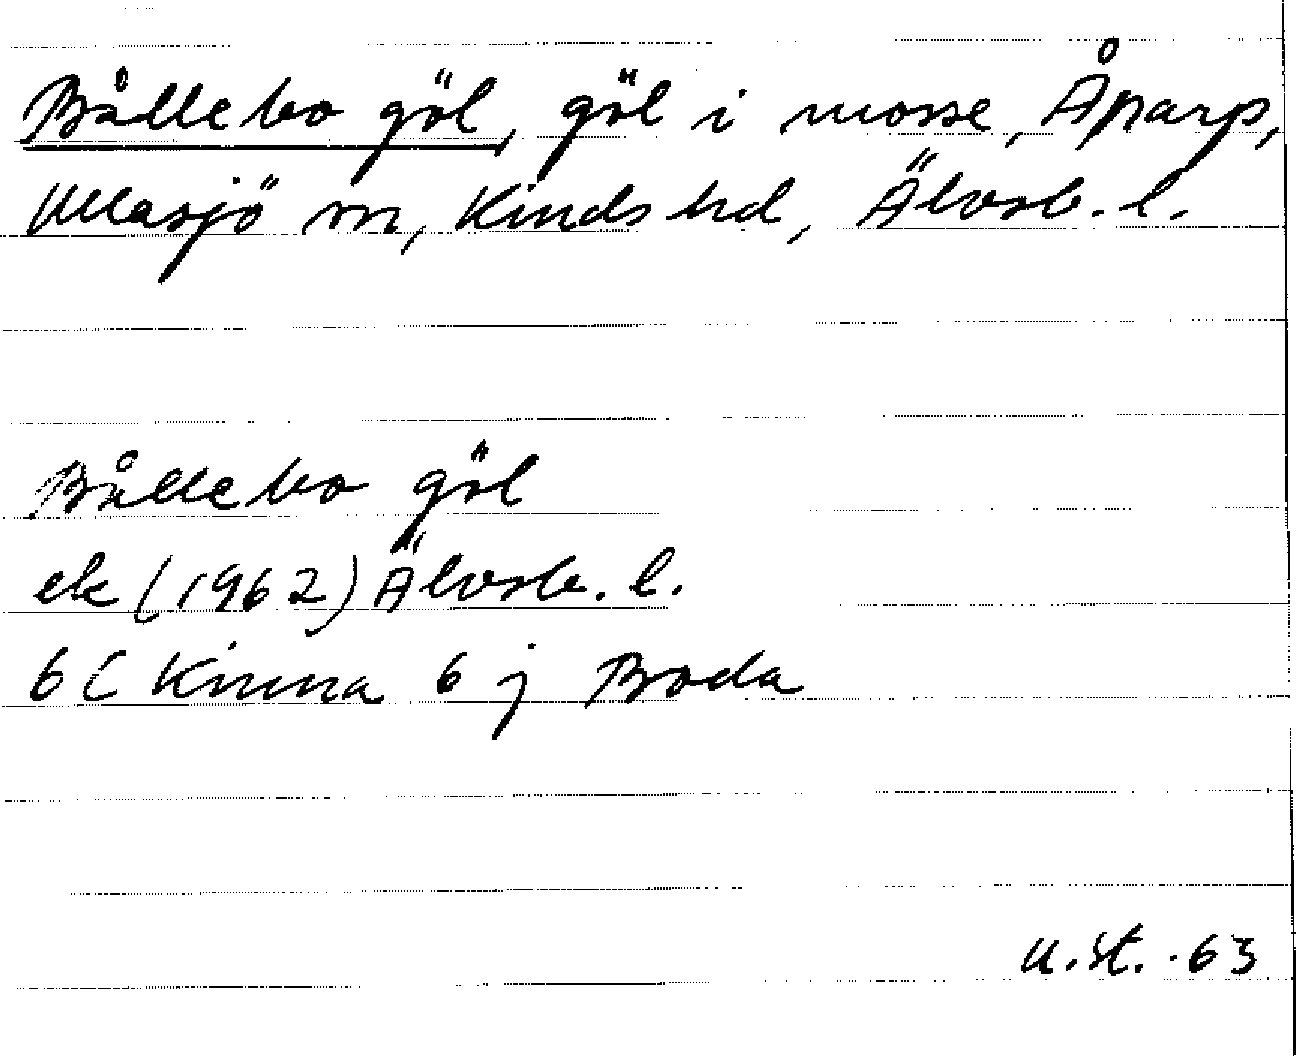 Bållebo göl, göl i mosse, Åparp,
Ullasjö sn, Kinds hd, Älvsb. l.
Bållebo göl
ek (1962) Älvsb. l.
6C Kinna 6 j Boda
u.st. -63